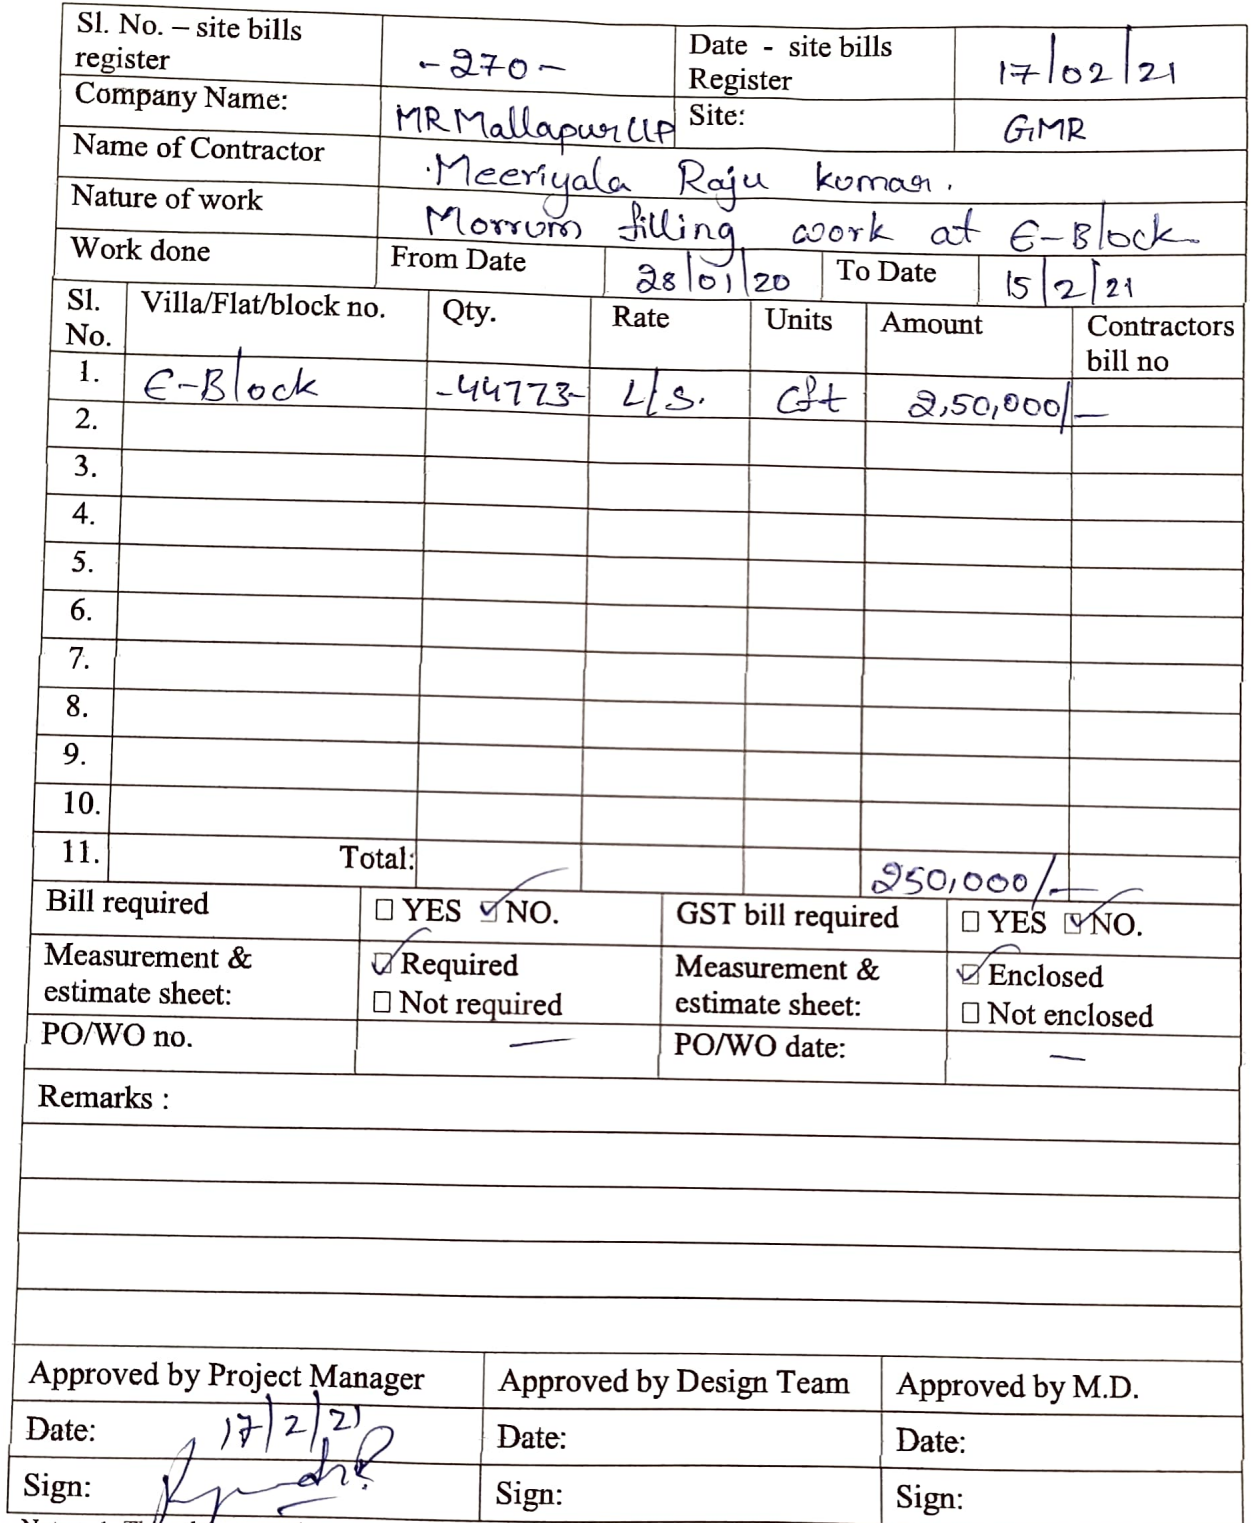 Sl. No. – site bills register -270- Date - site bills Register 17/02/21
Company Name: MR Mallapur LLP Site: GMR
Name of Contractor Meeriyala Raju kumar.
Nature of work Morrum filling work at E-Block
Work done From Date 28/01/20 To Date 15/2/21
Sl. No. Villa/Flat/block no. Qty. Rate Units Amount Contractors bill no
1. E-Block -44773- L/S. Cft 2,50,000/-
2.
3.
4.
5.
6.
7.
8.
9.
10.
11. Total: 250,000/-
Bill required ☐ YES ☑ NO. GST bill required ☐ YES ☑ NO.
Measurement & estimate sheet: ☑ Required ☐ Not required Measurement & estimate sheet: ☑ Enclosed ☐ Not enclosed
PO/WO no. — PO/WO date: —
Remarks :
Approved by Project Manager Approved by Design Team Approved by M.D.
Date: 17/2/21 Date: Date:
Sign: Sign: Sign: